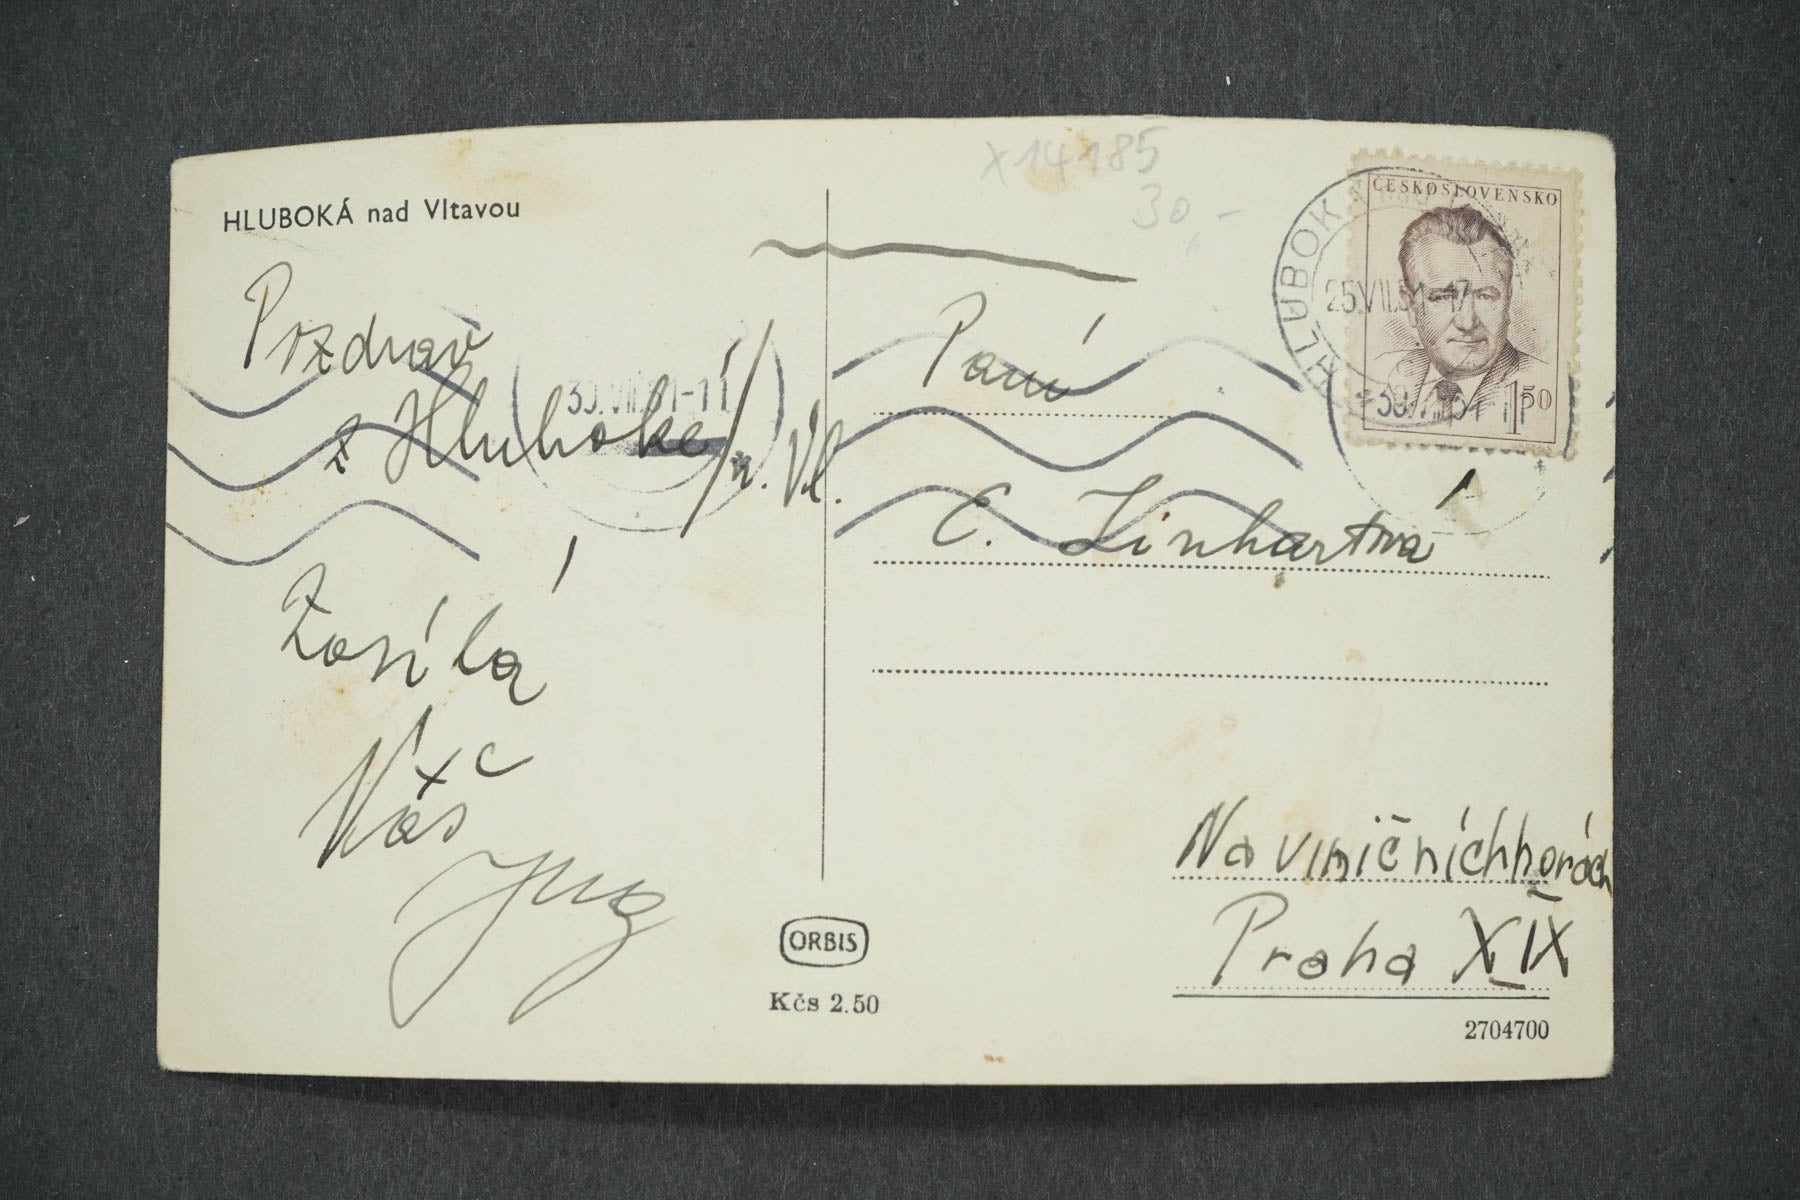 HLUBOKÁ nad Vltavou
Pozdrav
z Hluboké/n. Vl.
Zasílá
Váš
x14185
30,-
ČESKOSLOVENSKO
1,50
HLUBOK
25.VII.51-17
30.VII.51-11
30.VII.51-11
Paní
C. Linhartová
Na viničních horách
Praha XIX
ORBIS
Kčs 2.50
2704700